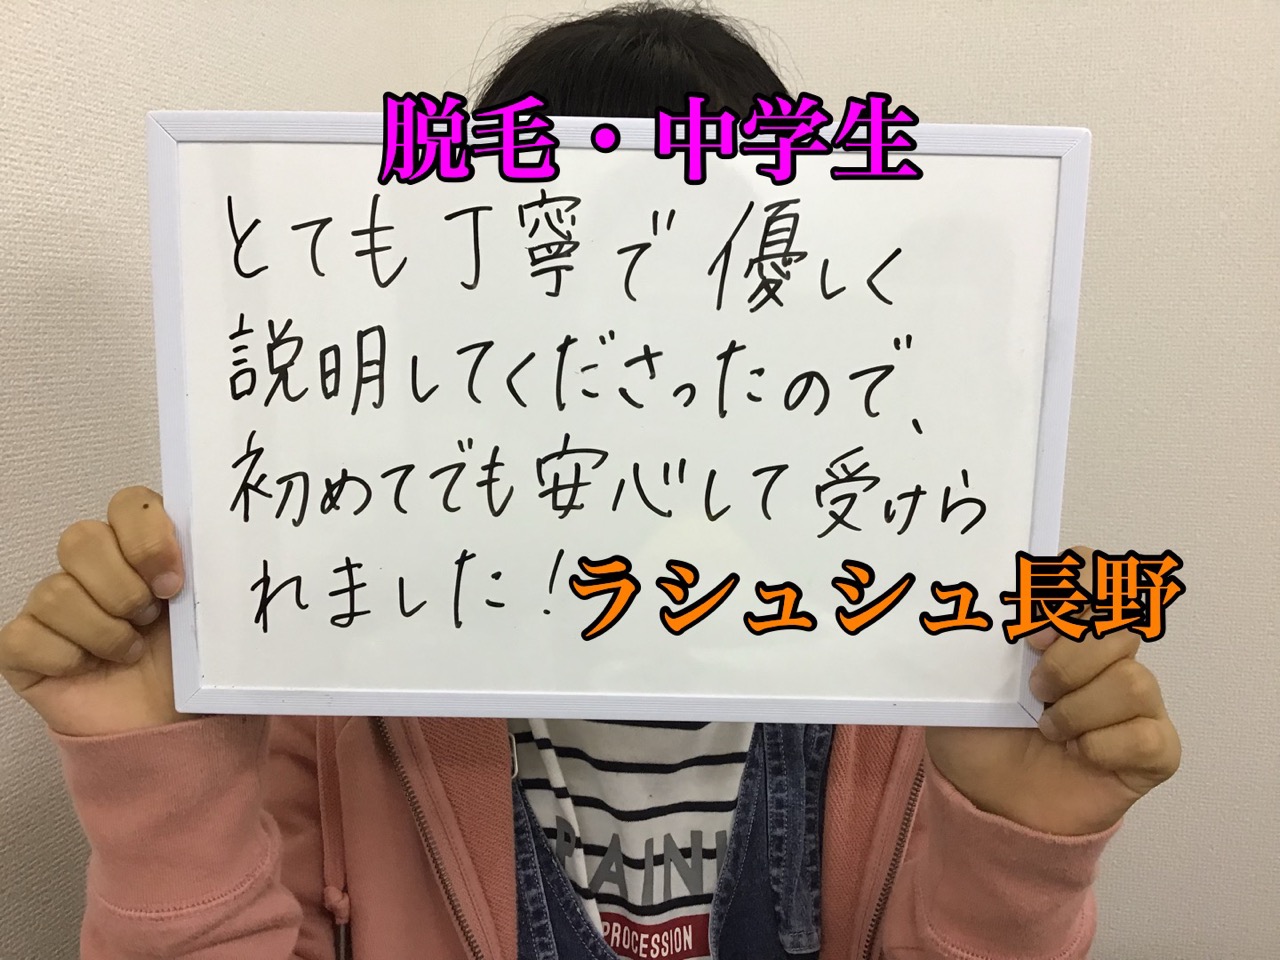 脱毛・中学生
とても丁寧で優しく
説明してくださったので、
初めてでも安心して受けら
れました!
ラシュシュ長野
RAINI
PROCESSION